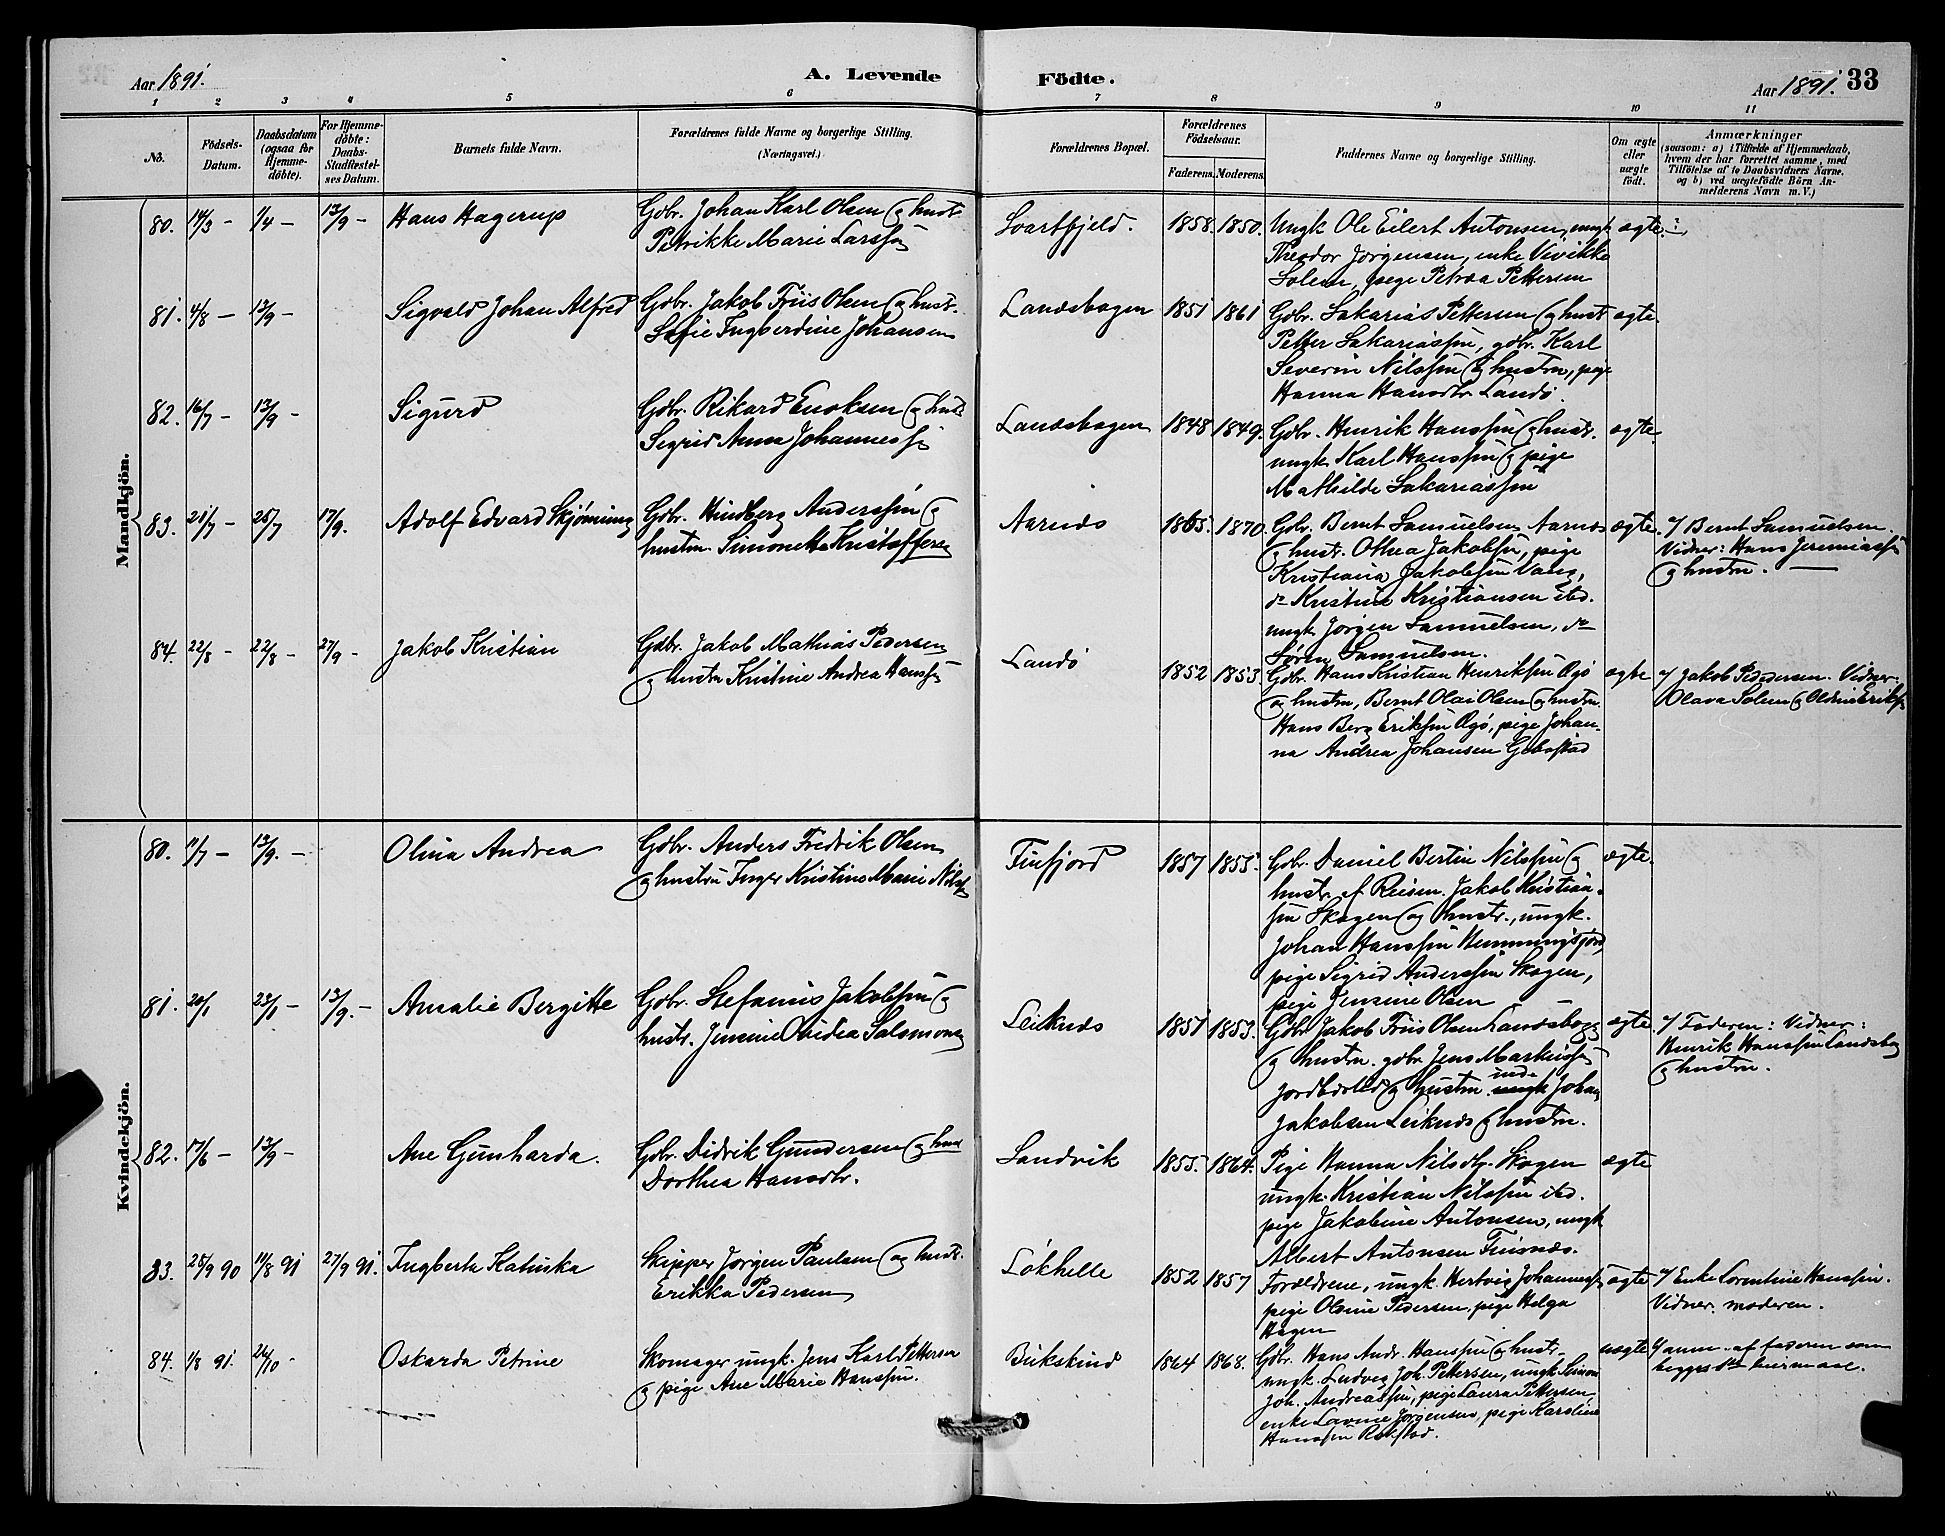 Aar 1891.
A. Levende Födte.
Aar 1891. 33
1 2 3 4 5 6 7 8 9 10 11
No.
Födsels-Datum.
Daabsdatum (ogsaa for Hjemme-döbte).
For Hjemme-döbte: Daabs-Stadfæstel-ses Datum.
Barnets fulde Navn.
Forældrenes fulde Navne og borgerlige Stilling.
(Næringsvei.)
Forældrenes Bopæl.
Forældrenes Födselsaar.
Faderens. Moderens.
Faddernes Navne og borgerlige Stilling.
Om ægte eller uægte födt.
Anmærkninger
(saasom: a) i Tilfælde af Hjemmedaab, hvem der har forrettet samme, med Tilföielse af to Daabsvidners Navne, og b) ved uægtefödte Börn An-melderens Navn m. V.)
Mandkjön.
80. 14/3 - 1/4 - 13/9 - Hans Hagerup
Gdbr. Johan Karl Olsen og hust.
Petrikke Marie Larssen
Svartfjeld. 1858. 1850.
Ungk Ole Eilert Antonsen, ungk
Theodor Jörgensen, enke Vivikke
Solem, pige Petræa Pettersen
ægte.
81. 4/8 - 13/9 - Sigvald Johan Alfred
Gdbr. Jakob Friis Olsen og hustr.
Sofie Ingberdine Johansen
Landsbogen 1851 1861
Gdbr. Sakarias Pettersen og hustr
Petter Sakariassen, gdbr. Karl
Severin Nilssen og hustru, pige
Hanna Hansdtr. Landö.
ægte.
82. 16/7 - 13/9 - Sigurd
Gdbr. Rikard Enoksen og hust.
Sigrid Anna Johanness
Landsbogen 1848 1849.
Gdbr. Henrik Hanssen og hustr.
ungk. Karl Hanssen og pige
Mathilde Sakariassen
ægte.
83. 21/7 - 25/7 17/9. Adolf Edvard Skjönning
Gdbr. Hindberg Anderssen og
hustru Simonette Kristoffersen
Aarnæs 1865. 1870.
Gdbr. Bernt Samuelsen Aarnæs
og hustr. Othea Jakobsen, pige
Kristiana Jakobsen Vang,
do Kristine Kristiansen ibd.
ungk. Jörgen Samuelsen, do
Sören Samuelsen.
ægte.
v/ Bernt Samuelsen.
Vidner: Hans Jeremiass
og hustru.
84. 22/8 - 22/8 - 27/9 - Jakob Kristian
Gdbr. Jakob Mathias Pedersen
og hustru Kristine Andrea Hanss
Landö 1852 1853.
Gdbr. Hans Kristian Henriksen Ögö
og hustru, Bernt Olai Olsen og hustru
Hans Berg Eriksen Ögö, pige Johan-
na Andrea Johansen Gibostad
ægte
v/ Jakob Pedersen. Vidner:
Olava Solem og Oldine Eriks
Kvindekjön.
80. 11/7 - 13/9. - Olina Andrea
Gdbr. Anders Fredrik Olsen
og hustru Inger Kristine Marie Nilss
Finfjord 1857 1855.
Gdbr. Daniel Bertin Nilssen og
hustr. af Reisen. Jakob Kristian-
sen Skogen og hustr., ungk.
Johan Hanssen Hemmingsjord,
pige Sigrid Anderssen Skogen,
pige Jensine Olsen
ægte.
81. 20/1 23/1 - 13/9. - Amalie Bergitte
Gdbr. Stefanus Jakobsen og
hustr. Jensine Ovidea Salomons
Leiknæs 1851 1853.
Gdbr Jakob Friis Olsen Landsbog
og hustru. gdbr. Jens Markuss
Jordbærlid og hustru. ind. ungk Johan
Jakobsen Leiknæs og hustru.
ægte.
v/ Faderen: Vidner:
Henrik Hanssen Landsbog
og hustru.
82. 17/6 - 13/9 - Ane Gunharda.
Gdbr. Didrik Gundersen og hust
Dorthea Hansdtr.
Sandvik 1855. 1864.
Pige Hanna Nilsdtr. Skogen
ungk. Kristian Nilssen ibd.
pige Jakobine Antonsen, ungk
Albert Antonsen Finsnæs.
ægte
83. 25/9 90 11/8 91 27/9 91. Ingberta Katinka
Skipper Jörgen Paulsen og hustr.
Erikka Pedersen
Løkhelle 1852 1857
Forældrene, ungk. Hertvig Johanness
pige Olsine Pedersen, pige Helga
Hagen
ægte
v/ Enke Lorentine Hanssen.
Vidner. moderen.
84. 1/8 91. 24/10 - Oskarda Petrine
Skomager ungk. Jens Karl Pettersen
og pige Ane Marie Hanssen.
Bukskind 1864 1868.
Gdbr. Hans Andr. Hanssen og hustr.
ungk. Ludvig Joh. Pettersen, ungk Simon
Joh. Andreassen, pige Laura Pettersen
enke Lavine Jörgensen, pige Karoline
Hanssen Rokstad.
uægte